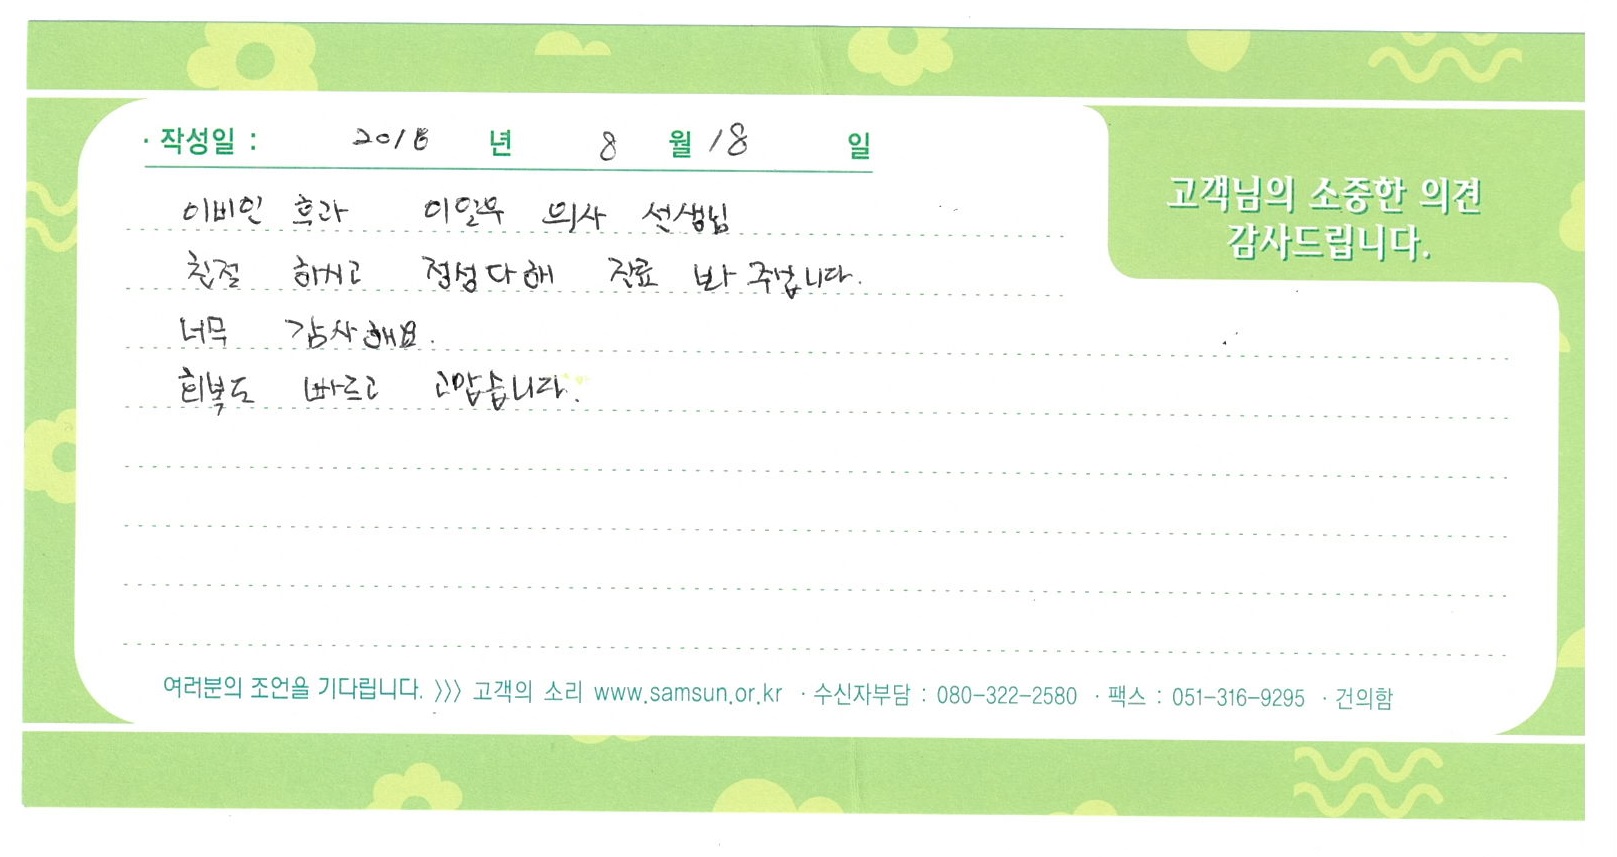 · 작성일 : 2016 년 8 월 18 일
고객님의 소중한 의견
감사드립니다.
이비인 흐과 이일우 의사 선생님
친절 하시고 정성다해 진료 봐 주십니다.
너무 감사해요.
회복도 빠르고 고맙습니다.
여러분의 조언을 기다립니다. 〉〉〉 고객의 소리 www.samsun.or.kr · 수신자부담 : 080-322-2580 · 팩스 : 051-316-9295 · 건의함